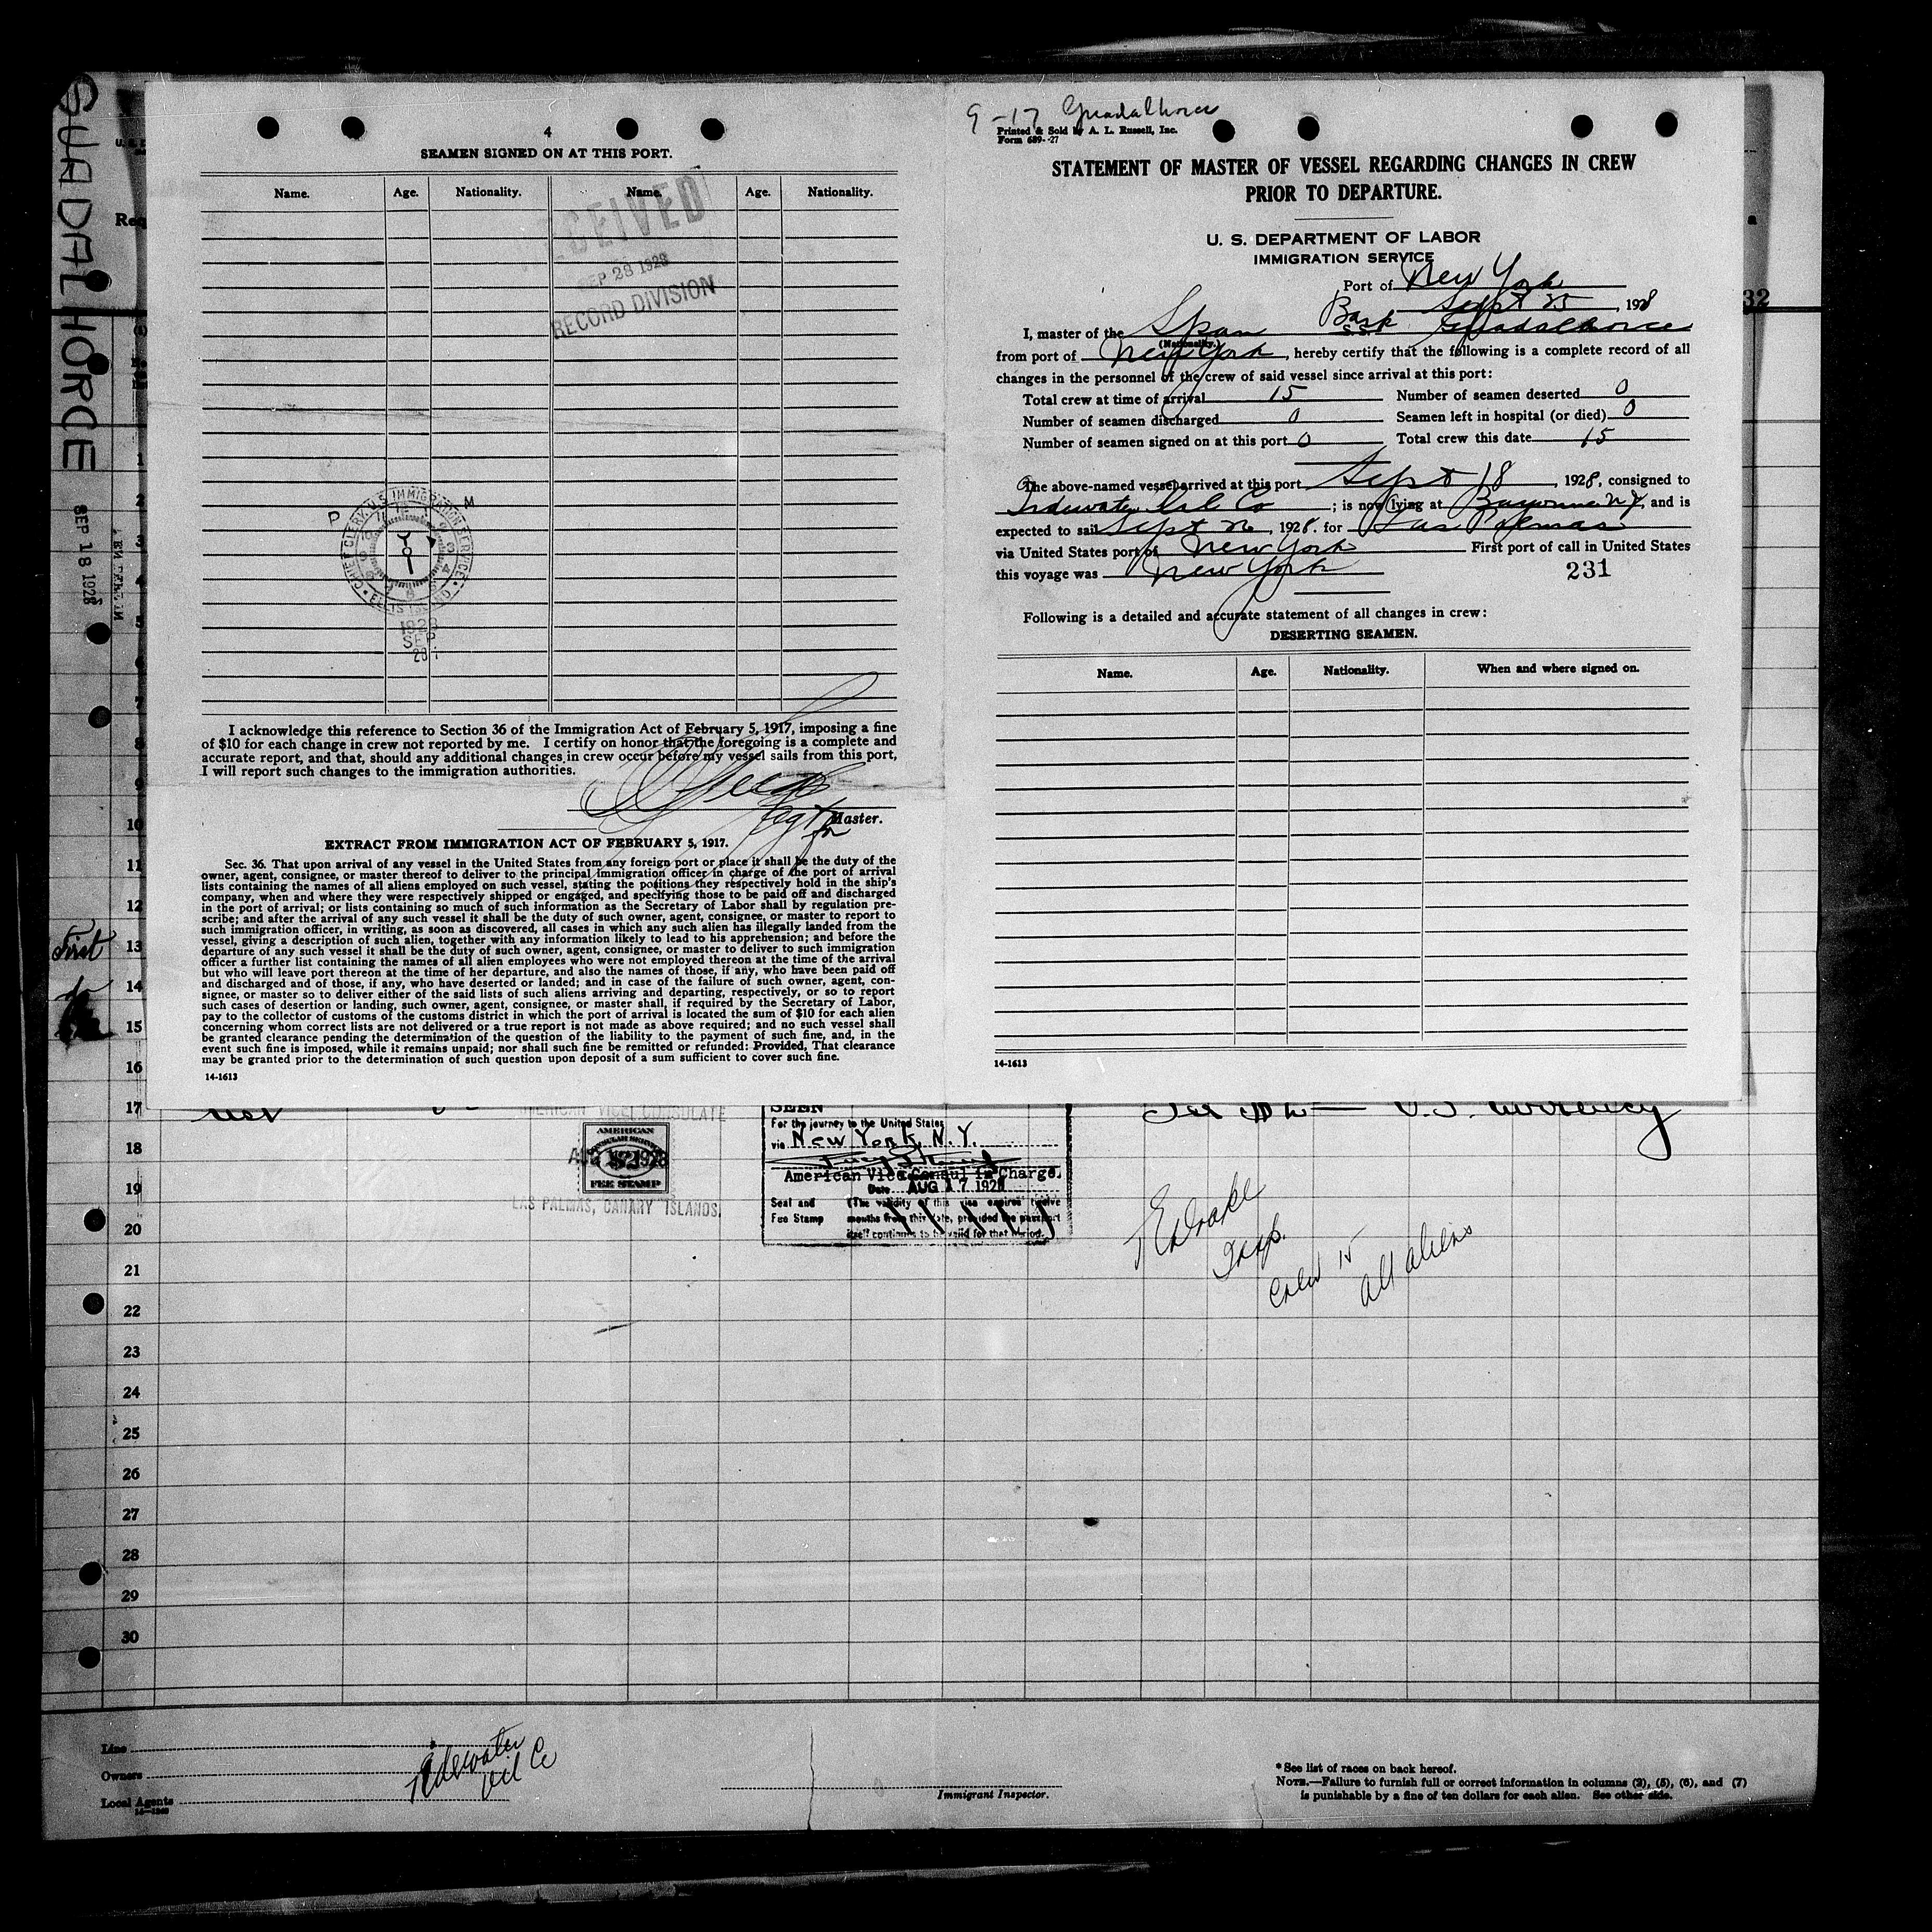 GUADALHORCE
SEP 18 1928
First
4
SEAMEN SIGNED ON AT THIS PORT.
Name. Age. Nationality. Name. Age. Nationality.
RECEIVED
SEP 28 1928
RECORD DIVISION
P M
CHIEF CLERK U.S. IMMIGRATION SERVICE
ELLIS ISLAND
1928
SEP
I acknowledge this reference to Section 36 of the Immigration Act of February 5, 1917, imposing a fine
of $10 for each change in crew not reported by me. I certify on honor that the foregoing is a complete and
accurate report, and that, should any additional changes in crew occur before my vessel sails from this port,
I will report such changes to the immigration authorities.
Agt for
Master.
EXTRACT FROM IMMIGRATION ACT OF FEBRUARY 5, 1917.
Sec. 36. That upon arrival of any vessel in the United States from any foreign port or place it shall be the duty of the
owner, agent, consignee, or master thereof to deliver to the principal immigration officer in charge of the port of arrival
lists containing the names of all aliens employed on such vessel, stating the positions they respectively hold in the ship's
company, when and where they were respectively shipped or engaged, and specifying those to be paid off and discharged
in the port of arrival; or lists containing so much of such information as the Secretary of Labor shall by regulation pre-
scribe; and after the arrival of any such vessel it shall be the duty of such owner, agent, consignee, or master to report to
such immigration officer, in writing, as soon as discovered, all cases in which any such alien has illegally landed from the
vessel, giving a description of such alien, together with any information likely to lead to his apprehension; and before the
departure of any such vessel it shall be the duty of such owner, agent, consignee, or master to deliver to such immigration
officer a further list containing the names of all alien employees who were not employed thereon at the time of the arrival
but who will leave port thereon at the time of her departure, and also the names of those, if any, who have been paid off
and discharged and of those, if any, who have deserted or landed; and in case of the failure of such owner, agent, con-
signee, or master so to deliver either of the said lists of such aliens arriving and departing, respectively, or so to report
such cases of desertion or landing, such owner, agent, consignee, or master shall, if required by the Secretary of Labor,
pay to the collector of customs of the customs district in which the port of arrival is located the sum of $10 for each alien
concerning whom correct lists are not delivered or a true report is not made as above required; and no such vessel shall
be granted clearance pending the determination of the question of the liability to the payment of such fine, and, in the
event such fine is imposed, while it remains unpaid; nor shall such fine be remitted or refunded: Provided, That clearance
may be granted prior to the determination of such question upon deposit of a sum sufficient to cover such fine.
14-1613
9-17 Guadalhorce
Printed & Sold by A. L. Russell, Inc.
Form 689--27
STATEMENT OF MASTER OF VESSEL REGARDING CHANGES IN CREW
PRIOR TO DEPARTURE.
U. S. DEPARTMENT OF LABOR
IMMIGRATION SERVICE
Port of New York
Sept 25, 1928
I, master of the Span Bark S.S. Guadalhorce
(Nationality.)
from port of New York, hereby certify that the following is a complete record of all
changes in the personnel of the crew of said vessel since arrival at this port:
Total crew at time of arrival 15 Number of seamen deserted 0
Number of seamen discharged 0 Seamen left in hospital (or died) 0
Number of seamen signed on at this port 0 Total crew this date 15
The above-named vessel arrived at this port Sept 18, 1928, consigned to
Tidewater Oil Co; is now lying at Bayonne N J, and is
expected to sail Sept 26, 1928. for Las Palmas
via United States port of New York First port of call in United States
this voyage was New York 231
Following is a detailed and accurate statement of all changes in crew:
DESERTING SEAMEN.
Name. Age. Nationality. When and where signed on.
14-1613
32
1
2
3
4
5
6
7
8
9
10
11
12
13
14
15
16
17
18
19
20
21
22
23
24
25
26
27
28
29
30
U.S. Currency
AMERICAN VICE CONSULATE
AMERICAN
CONSULAR SERVICE
$2
FEE STAMP
AUG 17 1928
LAS PALMAS, CANARY ISLANDS.
SEEN
For the journey to the United States
via New York, N.Y.
American Vice Consul in Charge.
Date AUG 17 1928
Seal and Fee Stamp
(The validity of this visa expires twelve
months from this date, provided the passport
itself continues to be valid for that period.
Drake
Insp.
Crew 15
all aliens
Line
Owners
Local Agents
Tidewater
Oil Co
Immigrant Inspector.
* See list of races on back hereof.
NOTE.—Failure to furnish full or correct information in columns (2), (5), (6), and (7)
is punishable by a fine of ten dollars for each alien. See other side.